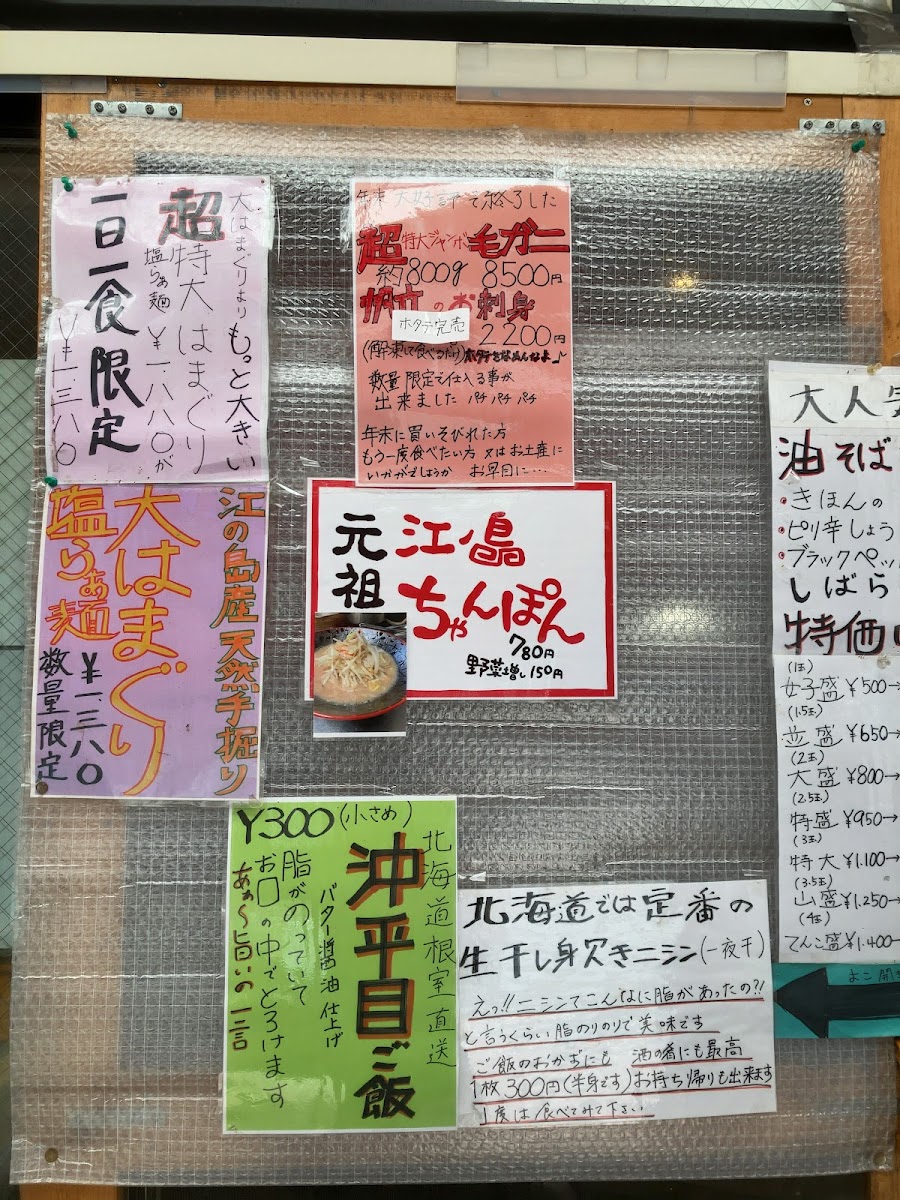 大はまぐりより
もっと大きい
超特大はまぐり
塩らぁ麺 ¥一八八〇が
一日一食限定
¥一三八〇
江の島産天然手掘り
大はまぐり
塩らぁ麺
¥一三八〇
数量限定
年末 大好評で終了した
超特大ジャンボ毛ガニ
約800g 8500円
帆立のお刺身
ホタテ完売
2200円
(解凍して食べるだけ)
数量限定で仕入る事が
出来ました パチ パチ パチ
年末に買いそびれた方
もう一度食べたい方 又はお土産に
いかがでしょうか お早目に…
元祖 江ノ島
ちゃんぽん
780円
野菜増し150円
大人気
油そば
・きほんの
・ピリ辛しょう
・ブラックペッ
しばら
特価
(1玉)
女子盛 ¥500→
(1.5玉)
並盛 ¥650→
(2玉)
大盛 ¥800→
(2.5玉)
特盛 ¥950→
(3玉)
特大 ¥1.100→
(3.5玉)
山盛 ¥1.250→
(4玉)
てんこ盛 ¥1.400→
よこ開
¥300(小さめ)
北海道根室直送
沖平目ご飯
バター醤油仕上げ
脂がのっていて
お口の中でとろけます
あぁ〜旨いの一言
北海道では定番の
生干し身欠きニシン(一夜干)
えっ!!ニシンてこんなに脂があったの?!
と言うくらい脂のりのりで美味です
ご飯のおかずにも 酒の肴にも最高
1枚300円(半身です)お持ち帰りも出来ます
1度は食べてみて下さい